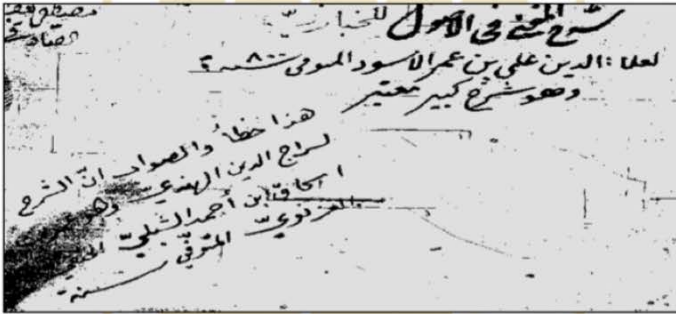 شرح المغني في الأصول للخبازيّ
لعلاء الدين علي بن عمر الأسود المتوفى ٨٠٠ سنة
وهو شرح كبير معتبر
هذا خطأ والصواب انّ الشرح
لسراج الدين الهندي وهو عمر
ابن أحمد الشبليّ
الغزنويّ المتوفّى سنة